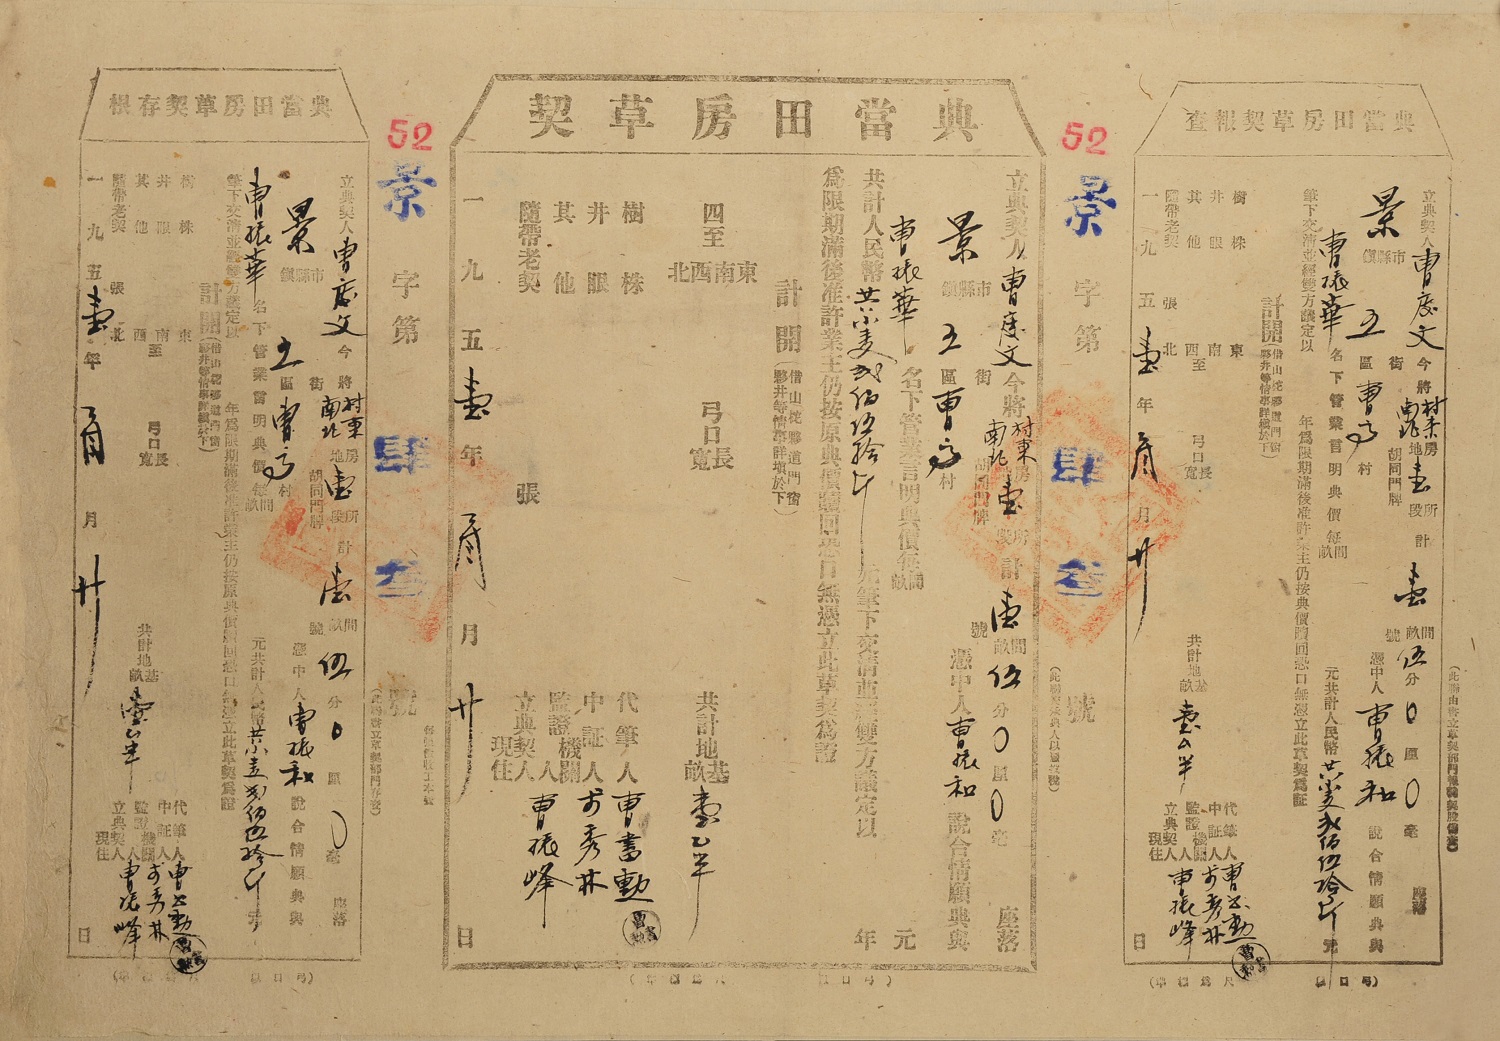 典當田房草契報查
立典契人曹度文今將村東南北房地壹所段計壹間畝伍分〇厘〇毫座落
景市縣鎮五區曹 村街胡同門牌號憑中人曹振和說合情願典與
曹振華名下管業言明典價每間畝元共計人民幣共小麦貳佰伍拾斤元
筆下交清並經雙方議定以年為限期滿後准許業主仍按典價贖回恐口無憑立此草契為証
計開
東南西北至
弓口長寬
共計地基畝壹畝半
樹株
井眼
其他
隨帶老契張
代筆人曹書勳
中証人 秀林
監證機關人
立典契人現住曹振峰
一九五壹年 月廿日
52
景字第肆叁號
典當田房草契
立典契人曹度文今將村東南北房地壹所段計壹間畝伍分〇厘〇毫座落
景市縣鎮五區曹 村街胡同門牌號憑中人曹振和說合情願典與
曹振華名下管業言明典價每間畝元
共計人民幣共小麦貳佰伍拾斤元筆下交清並經雙方議定以年
為限期滿後准許業主仍按原典價贖回恐口無憑立此草契為證
計開
四至東南西北
弓口長寬
共計地基畝壹畝半
樹株
井眼
其他
隨帶老契張
代筆人曹書勳
中証人 秀林
監證機關人
立典契人現住曹振峰
一九五壹年 月廿日
52
景字第肆叁號
典當田房草契存根
立典契人曹度文今將村東南北房地壹所段計壹間畝伍分〇厘〇毫座落
景市縣鎮五區曹 村街胡同門牌號憑中人曹振和說合情願典與
曹振華名下管業言明典價每間畝元共計人民幣共小麦貳佰伍拾斤元
筆下交清並經雙方議定以年為限期滿後准許業主仍按原典價贖回恐口無憑立此草契為証
計開
東南西北至
弓口長寬
共計地基畝壹畝半
樹株
井眼
其他
隨帶老契張
代筆人曹書勳
中証人 秀林
監證機關人
立典契人現住曹振峰
一九五壹年 月廿日